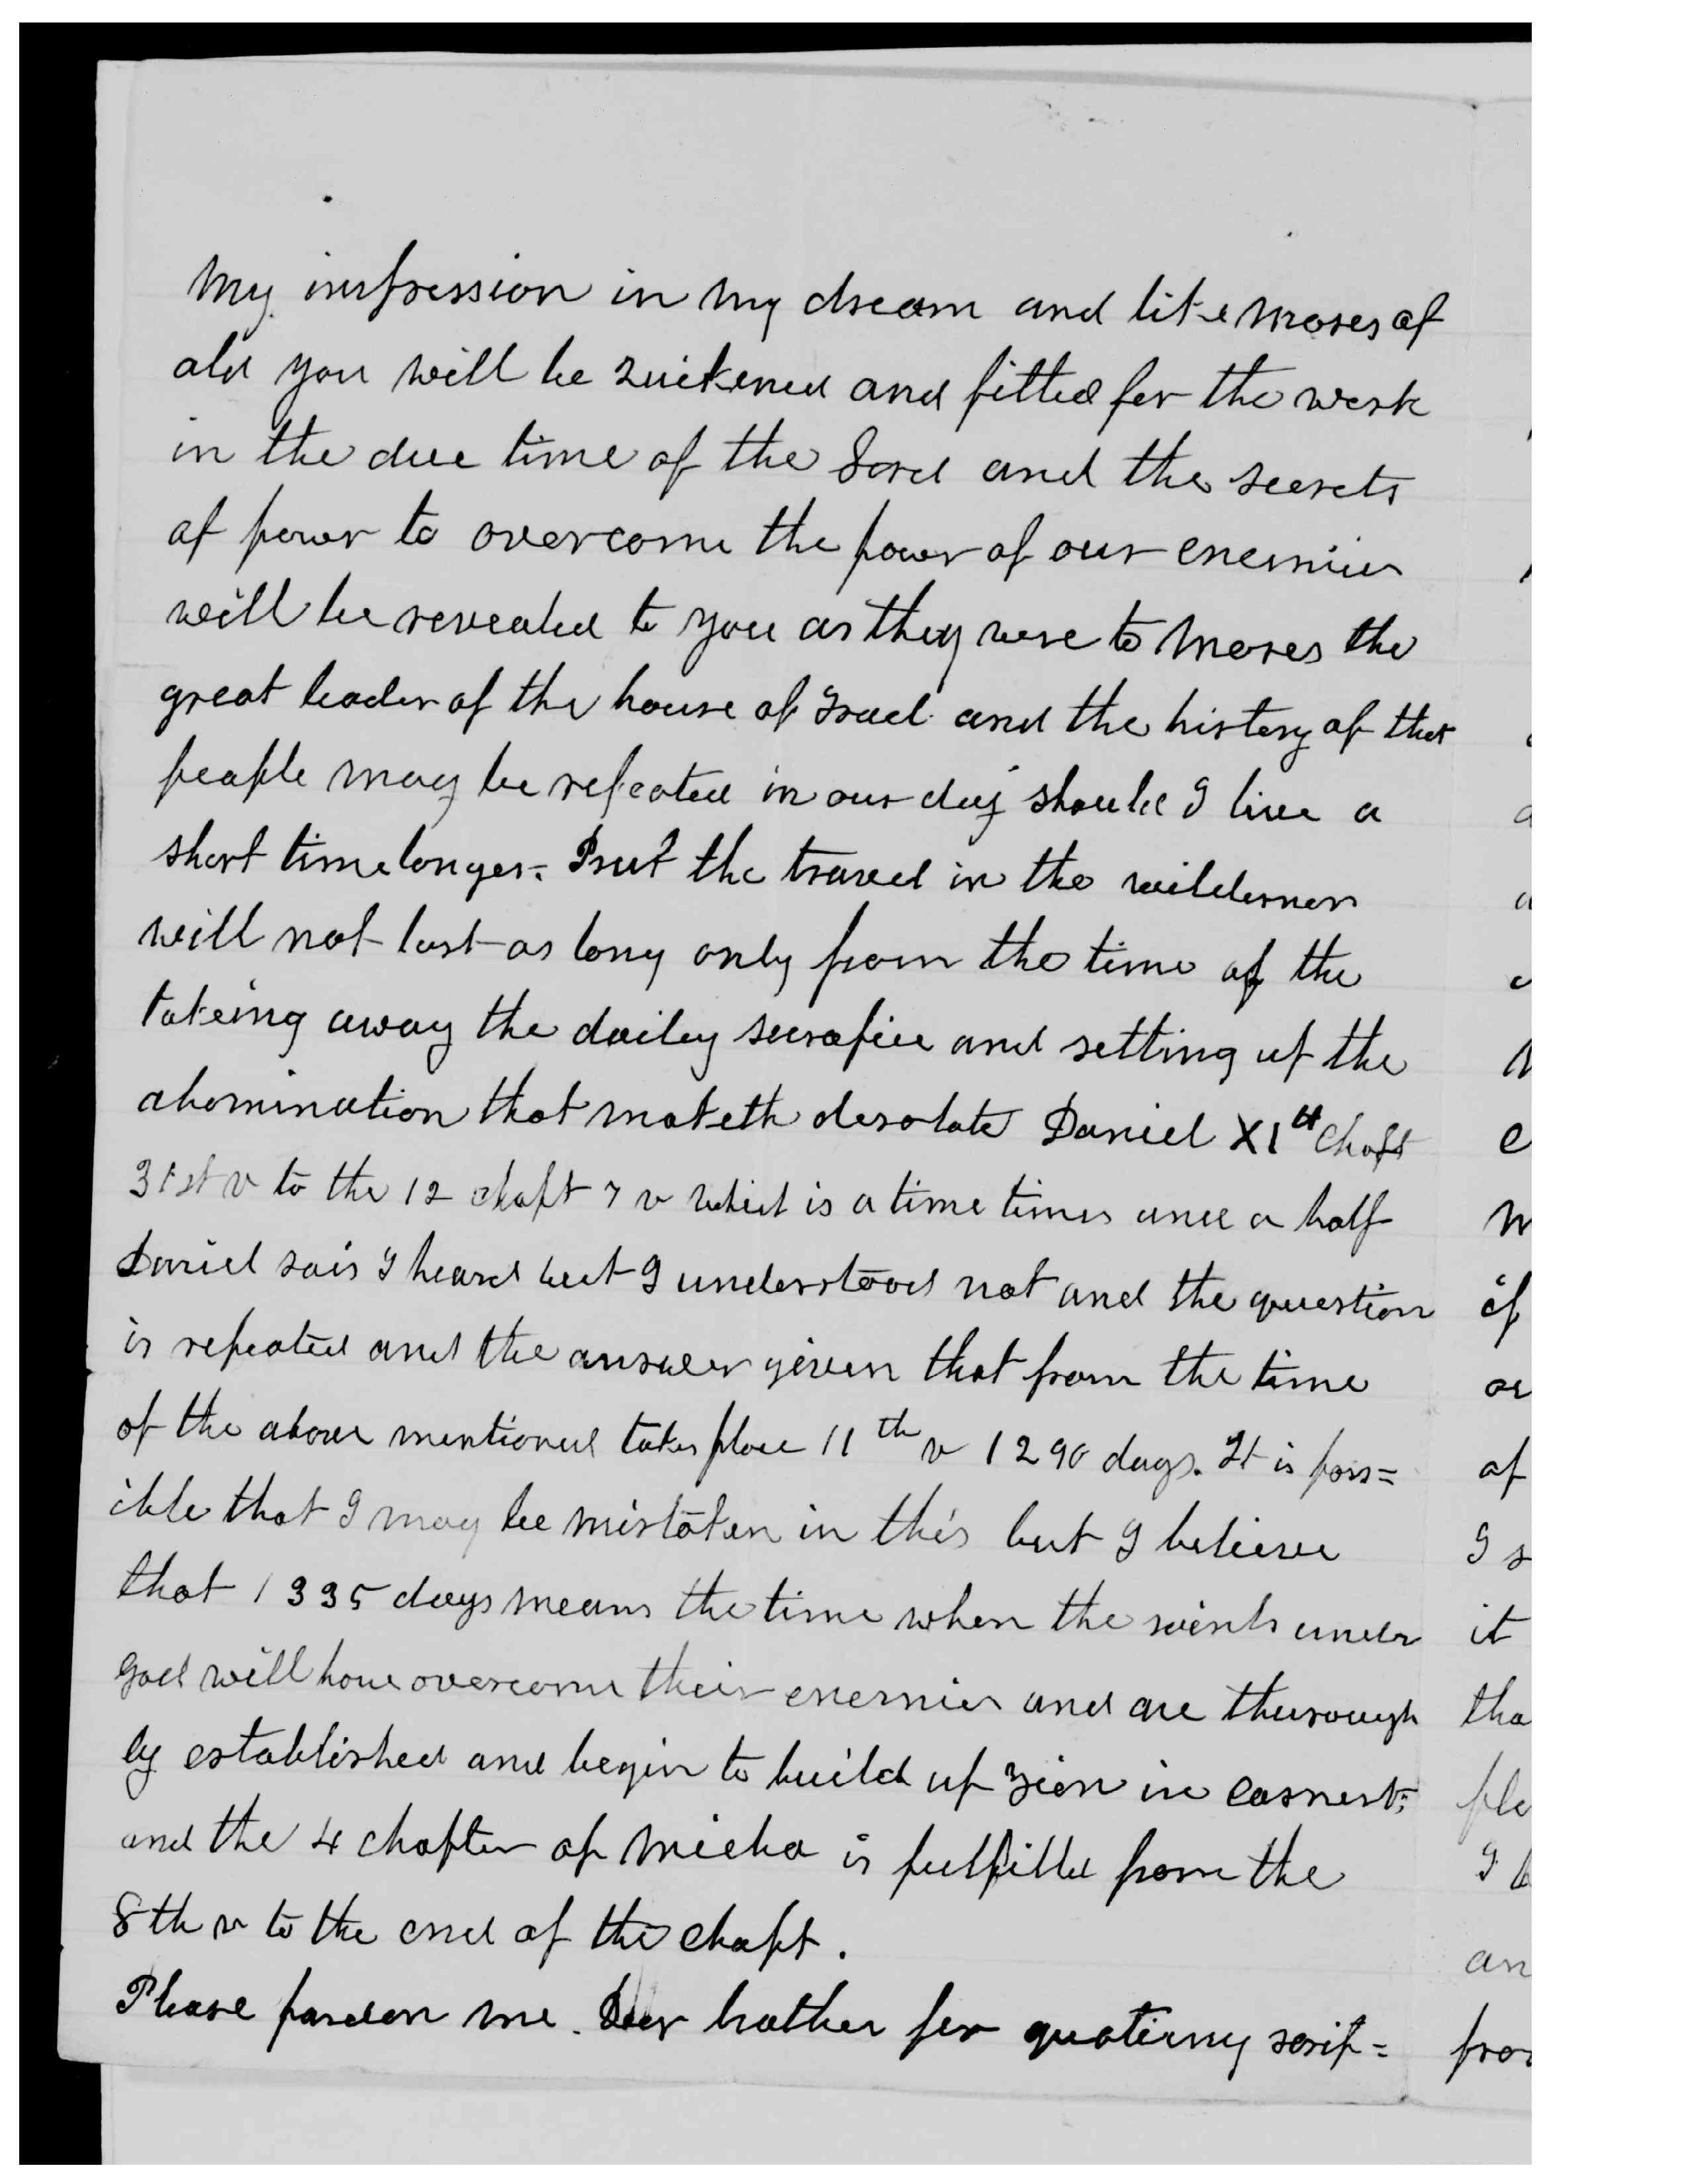 My impression in my dream and like Moses of
old you will be quickened and fitted for the work
in the due time of the Lord and the secrets
of power to overcome the power of our enemies
will be revealed to you as they were to Moses the
great leader of the house of Israel and the history of that
people may be repeated in our day should I live a
short time longer= But the travel in the wilderness
will not last as long only from the time of the
takeing away the dailey sacrafice and setting up the
abomination that maketh desolate Daniel XI th Chapt
31st v to the 12 chapt 7 v which is a time times and a half
Daniel sais I heard but I understood not and the question
is repeated and the answer given that from the time
of the above mentioned takes place 11th v 1290 days. It is poss=
ible that I may be mistaken in this but I believe
that 1335 days means the time when the saints under
god will have overcome their enemies and are thurough
ly established and begin to build up Zion in earnest;
and the 4 chapter of Micha is fulfilled from the
8th v to the end of the chapt.
Please pardon me. Dear brother for quoteing scrip=
e
if
of
I s
it
tha
ple
an